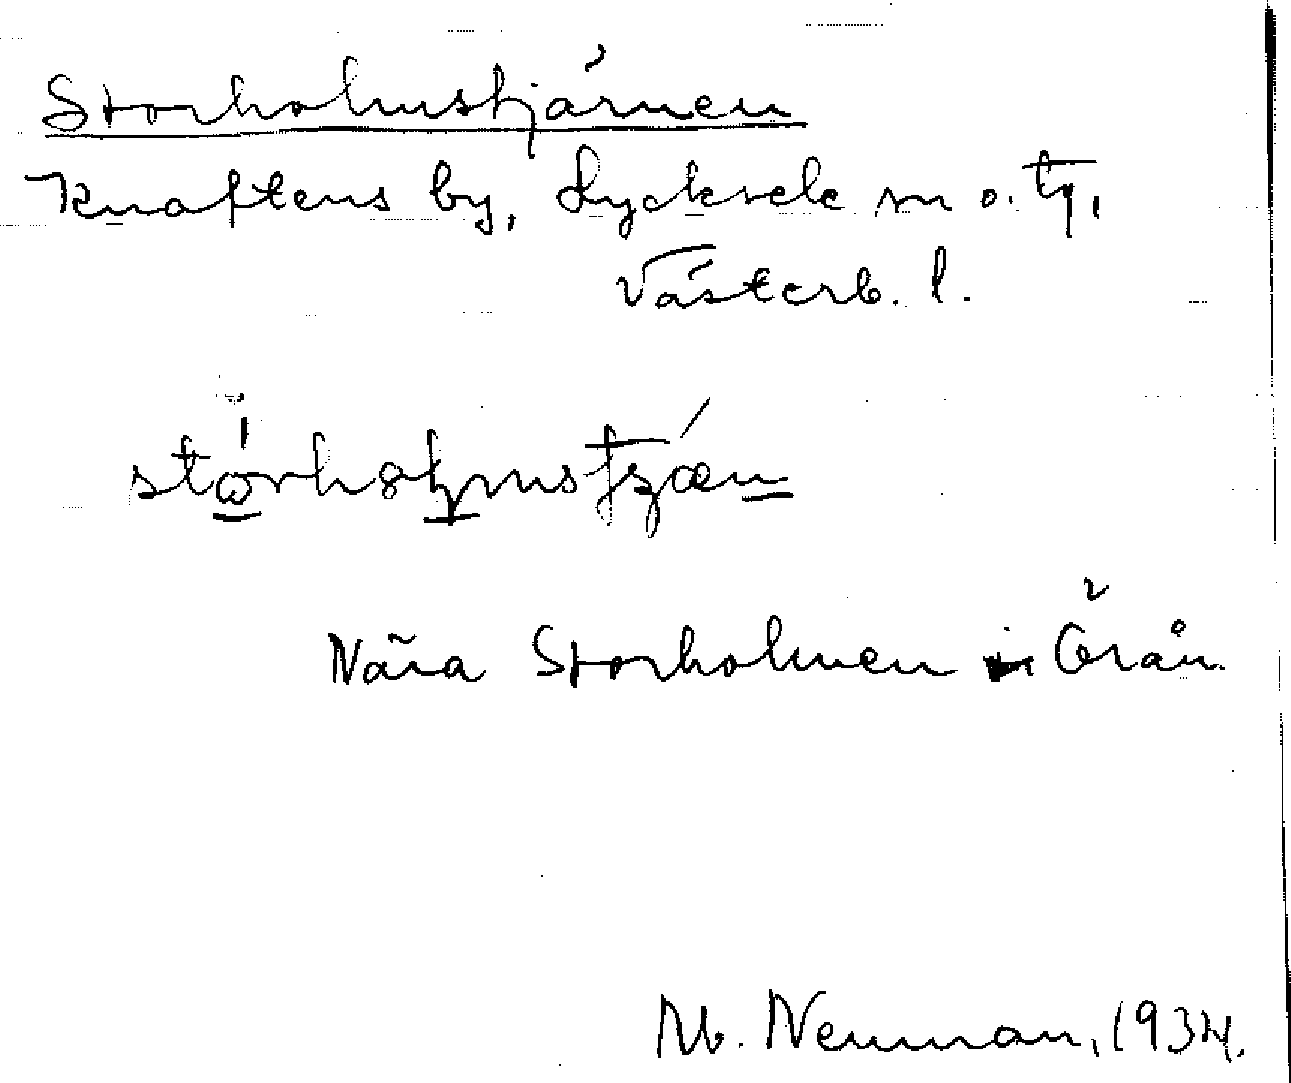 Storholmstjärnen
Knaftens by, Lycksele sn o. tg,
Västerb. l.
Nära Storholmen i Örån.
M. Neuman, 1934.